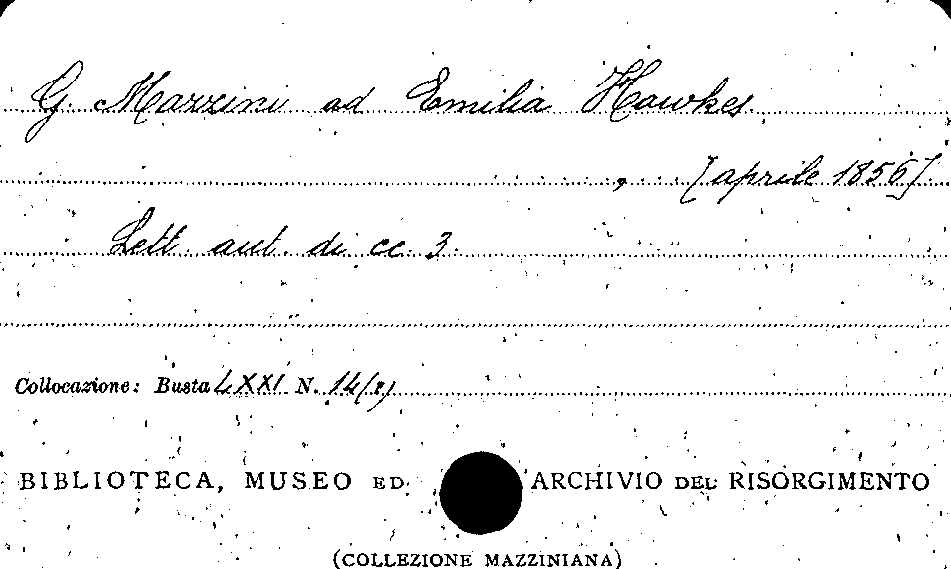 G. Mazzini ad Emilia Hawkes
, [aprile 1856]
Lett. aut. di cc. 3.
Collocazione: Busta LXXI N. 14(2)
BIBLIOTECA, MUSEO ED ARCHIVIO DEL RISORGIMENTO
(COLLEZIONE MAZZINIANA)